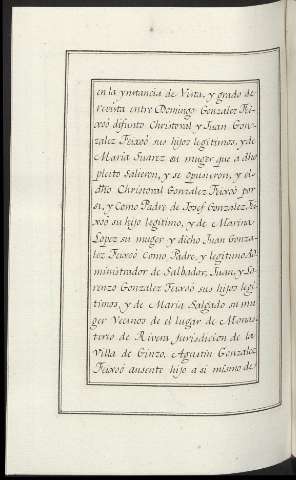 en la ynstancia de Vista, y grado de
revista entre Domingo Gonzalez Fei-
xoó difunto Christoval y Juan Gon-
zalez Feixoó sus hijos legitimos, y de
Maria Suarez su muger que a dho
pleito Salieron, y se opusieron, y el
dho Christoval Gonzalez Feixoó por
si, y como Padre de Josef Gonzalez Fei-
xoó su hijo legitimo, y de Marina
Lopez su muger y dicho Juan Gonza-
lez Feixoó como Padre, y legitimo Ad-
ministrador de Salbador, Juan, y Lo-
renzo Gonzalez Feixoó sus hijos legi-
timos, y de Maria Salgado su mu-
ger Vecinos de el lugar de Monas-
terio de Rivera Jurisdicion de la
Villa de Ginzo, Agustin Gonzalez
Feixoó ausente hijo a si mismo de